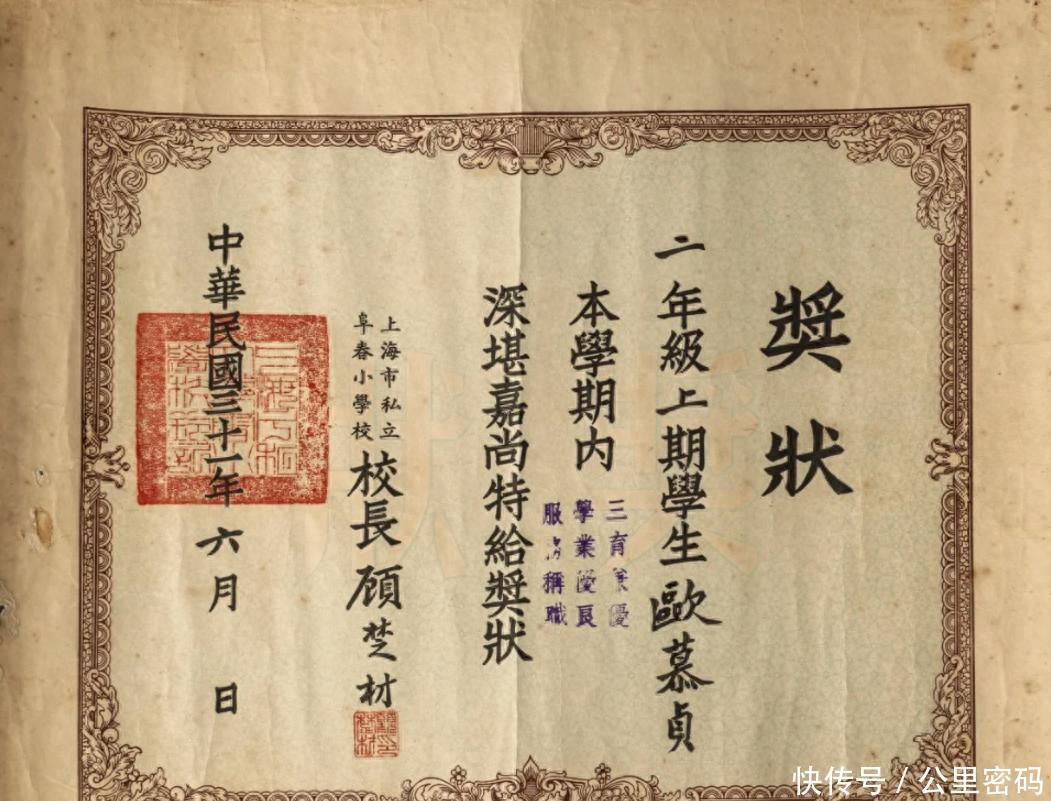 獎狀
二年級上期學生歐慕貞
本學期內
三育兼優
學業優良
服務稱職
深堪嘉尚特給獎狀
上海市私立
阜春小學校
校長顧楚材
中華民國三十一年六月 日
快传号 / 公里密码